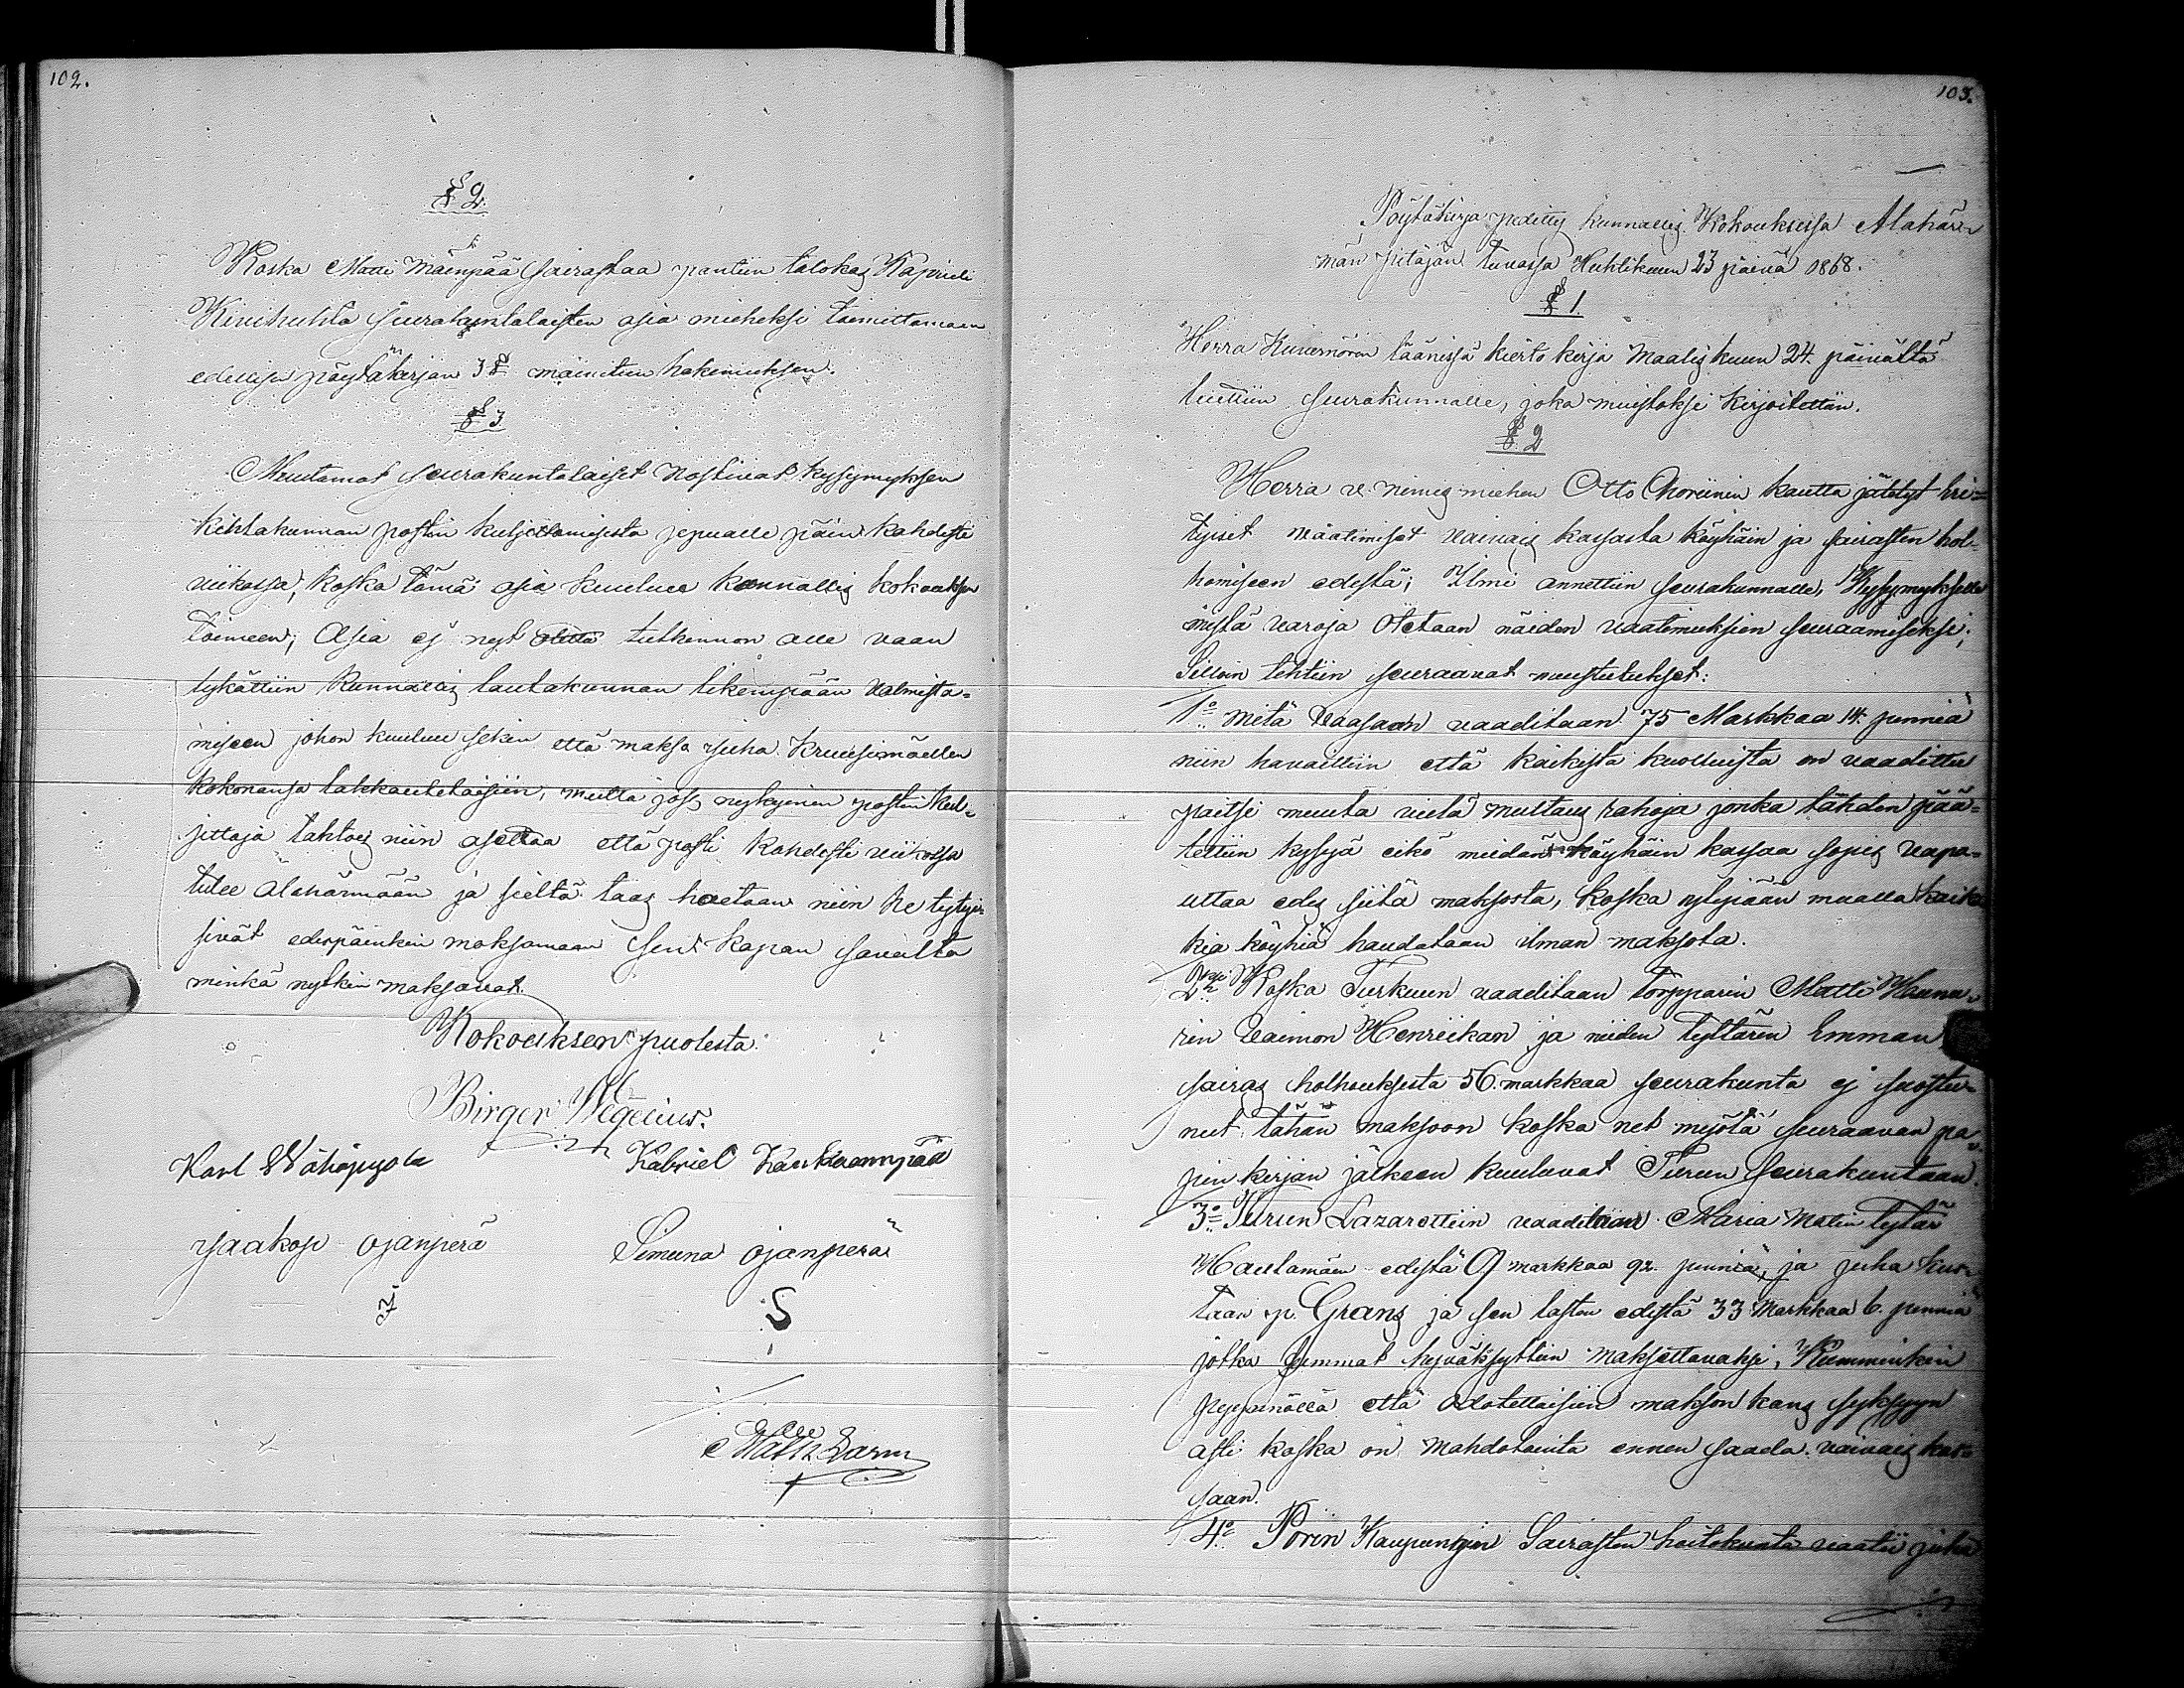 102.
§ 2.
Koska Matti Mäenpää sairastaa pantiin talokas Kaprieli
Kivihuhta seurakuntalaisten asia mieheksi toimittamaan
edellisen pöytäkirjan 3 § mainitun hakemuksen.
§ 3
Muutamat seurakuntalaiset nostivat kysymyksen
kihlakunnan postin kuljettamisesta jepualle päin kahdesti
viikossa, koska tämä asia kuuluu kunnallis kokouksen
toimeen; Asia ej nyt otettu tutkinnon alle vaan
lykättiin kunnallis lautakunnan likempään valmista=
miseen johon kuuluu sekin että maksu juha Kruusimäellen
kokonansa lakkautetaisiin, mutta jos nykyinen postin kul=
jettaja tahtoes niin asettaa että posti kahdesti viikossa
tulee Alahärmään ja sieltä taas haetaan niin he tytyi=
sivät edespäinkin maksamaan sen kapan savulta
minkä nytkin maksavat.
Kokouksen puolesta.
Birger Wegelius.
Karl Wähäpyola Kabriel Kankaanpää
jaakop ojanperä Simuna ojanperä
S
Matts Larm
103.
Pöytäkirja pidetty kunnallis Kokouksessa Alahär=
män pitäjän tuvassa Huhtikuun 23 päivä 1868.
§ 1.
Herra Kuvernörin läänissä kierto kirja Maalis kuun 24. päivältä
luettiin seurakunnalle, joka muistoksi kirjoitettiin.
§. 2
Herra v. nimis miehen Otto Choréinin kautta jätetyt eri=
tyiset määtimiset vaivais kassasta köyhäin ja sairasten hol=
homiseen edestä; Ilmi annettiin seurakunnalle, Kysymyksellä
mistä varoja Otetaan näiden vaatimuksien seuraamiseksi;
Silloin tehtiin seuraavat muistutukset:
1o mitä Vaasaan vaaditaan 75 Markkaa 14. penniä
niin havaittiin että kaikista kuolluista on vaadittu
paitsi muuta vielä multaus rahoja jonka tähden pää=
tettiin kysyä eikö meidän köyhäin kassaa sopis vapa=
uttaa edes siitä maksosta, koska ylipään muualla kaik=
kia köyhiä haudataan ilman maksota.
2o Koska Turkuun vaaditaan torpparin Matti Hauna=
rin Vaimon Henriikan ja niiden tyttären Emman
sairas holhouksesta 56. markkaa seurakunta ej suostu=
nut tähän maksoon koska net myötä seuraavan pa=
pin kirjan jälkeen kuuluvat Turun seurakuntaan.
3o Turun Lazarettiin vaaditaan Maria Matin tytär
Hautamäen edestä 9 markkaa 92. penniä, ja juha Kus=
taan p. Grans ja sen lasten edestä 33 Markkaa 6. penniä
jotka summat hyväksyttiin maksettavaksi, Kumminkin
pyynnöllä että odotettaisiin makson kans syksyyn
asti koska on mahdotointa ennen saada vaivais kas=
saan.
4o Porin Kaupungin Sairasten hoitokunta vaatii juha